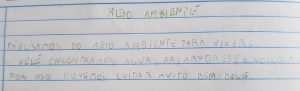 MEIO AMBIENTE
PRECISAMOS DO MEIO AMBIENTE PARA VIVER.
NELE ENCONTRAMOS AGUA, AR, ARVORES E
POR ISO DEVEMOS CUIDAR MUITO BEM DELE